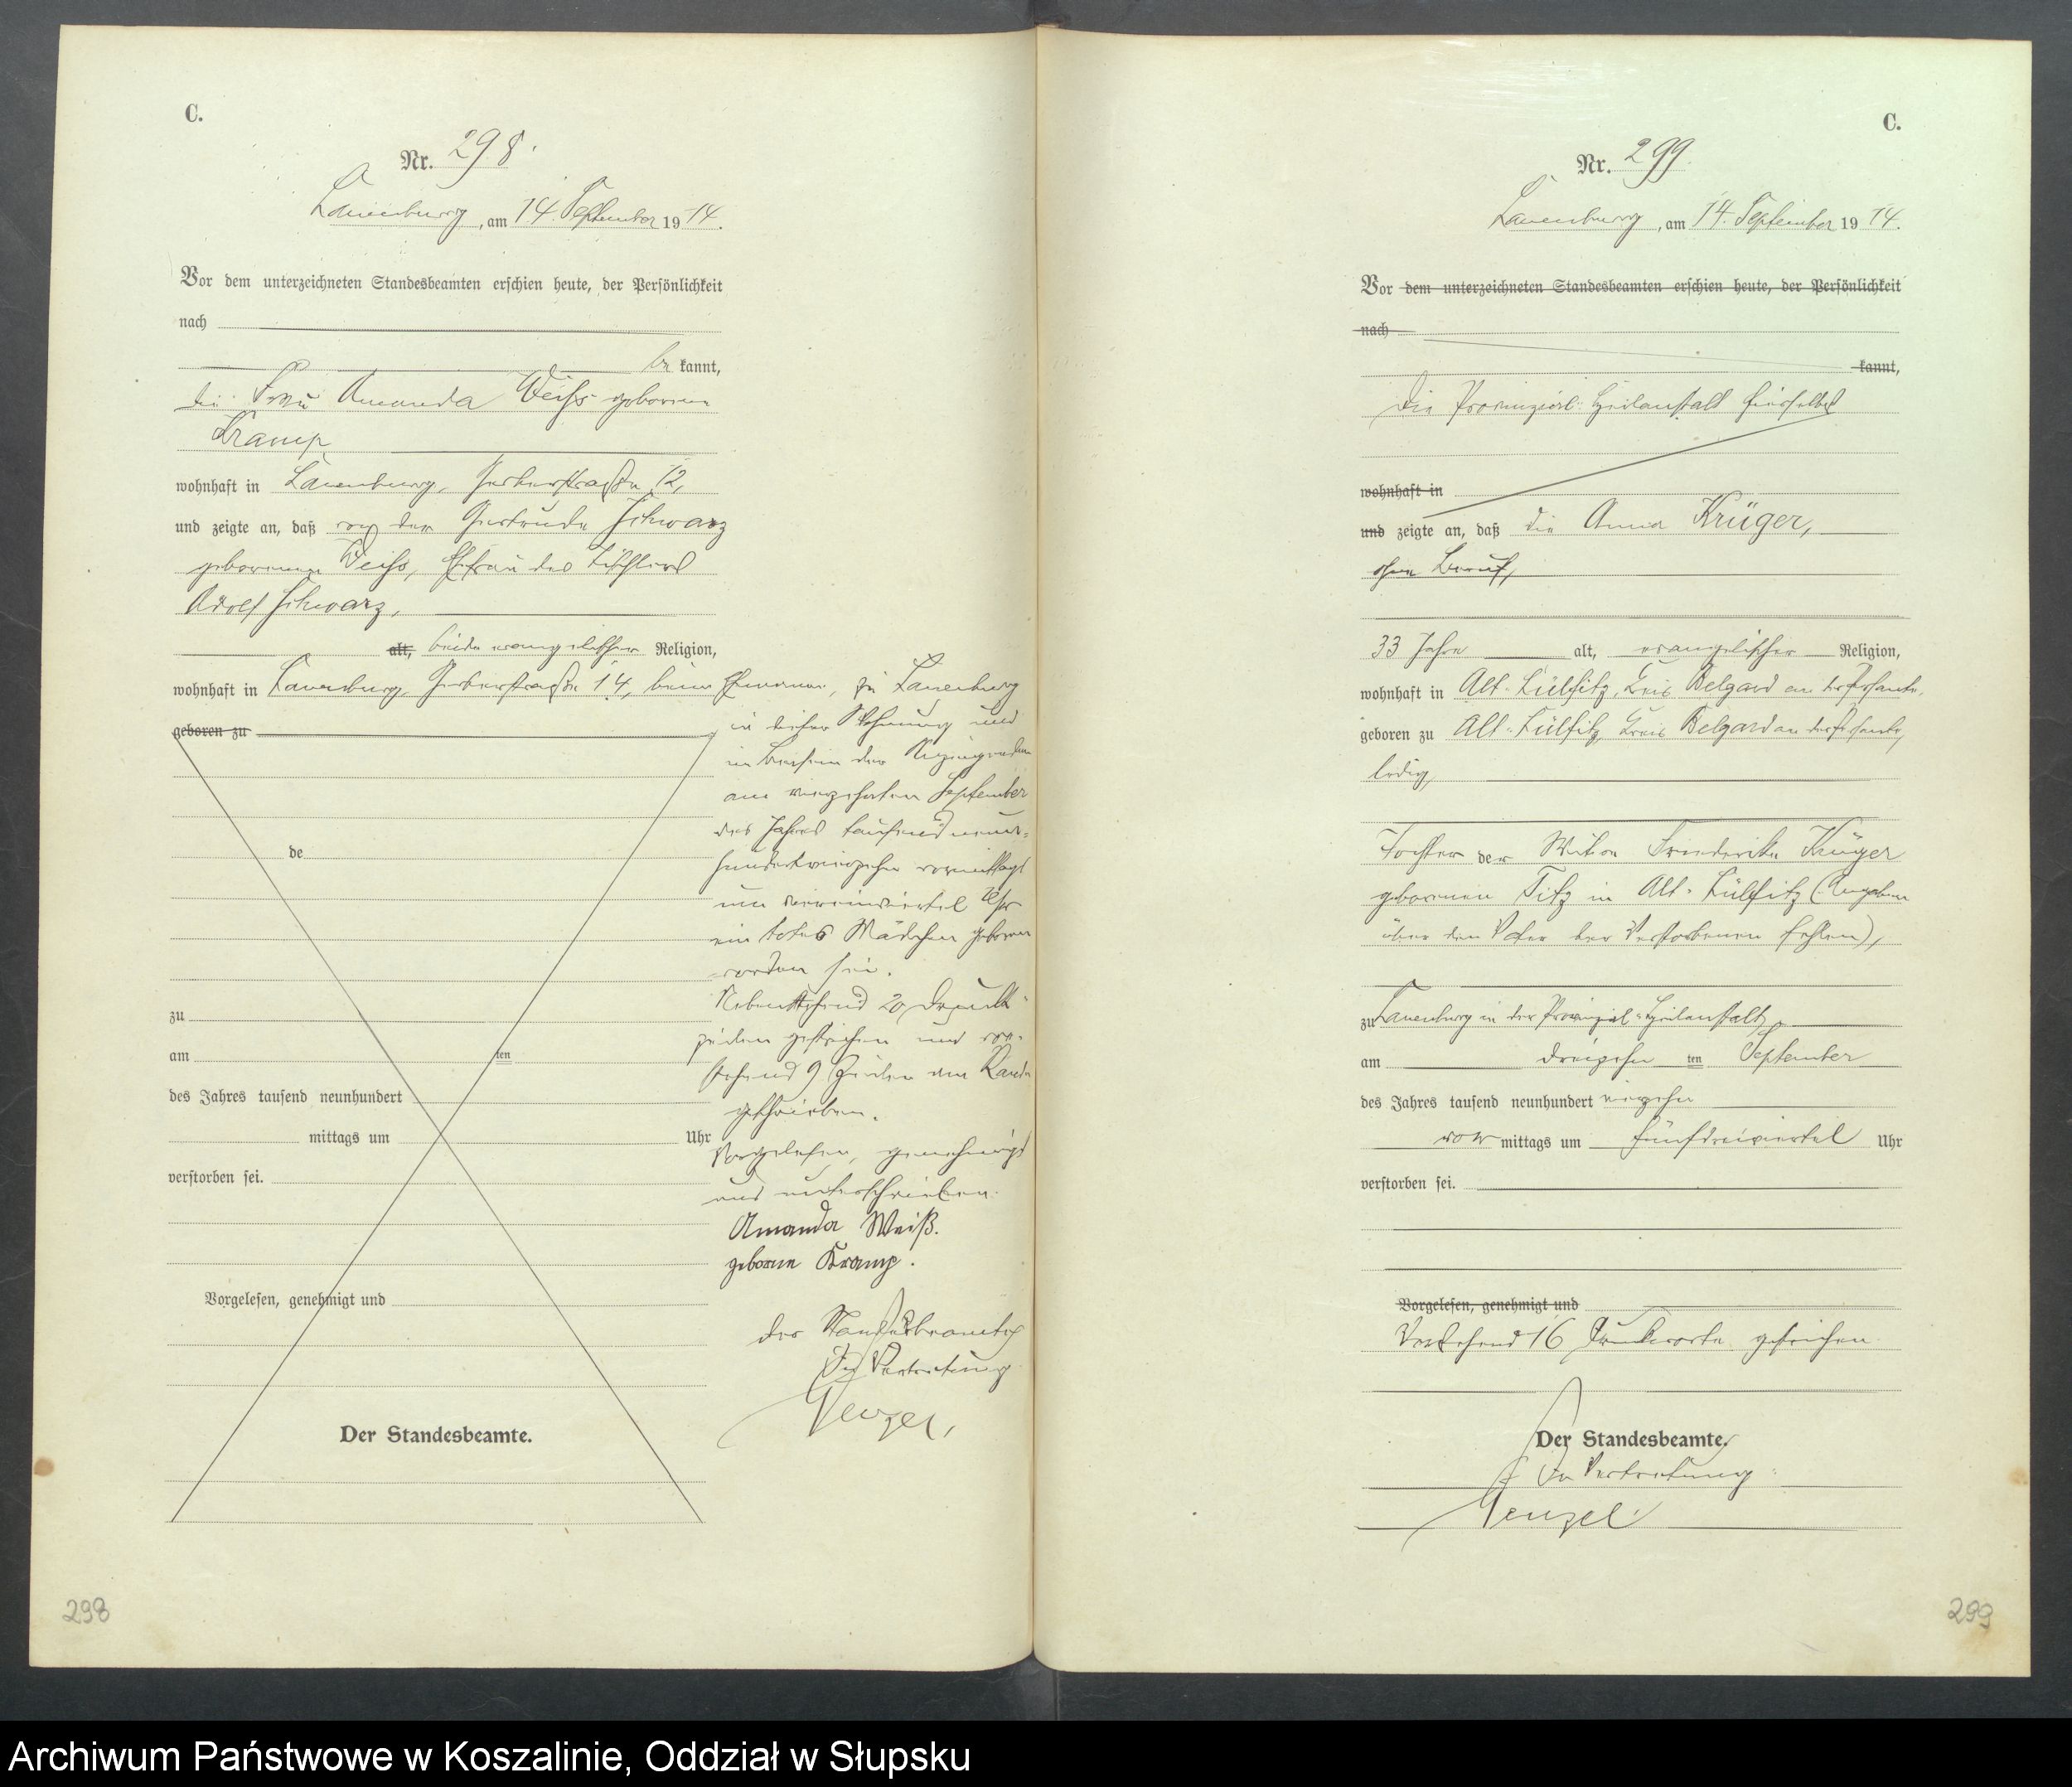 C.
Nr. 298.
Lauenburg, am 14. September 1914.
Vor dem unterzeichneten Standesbeamten erschien heute, der Persönlichkeit
nach
be kannt,
die Frau Amanda Weiß geborene
Kramp
wohnhaft in Lauenburg, Gerberstraße 12,
und zeigte an, daß von der Gertrude Schwarz
geborenen Weiß, Ehefrau des Tischlers
Adolf Schwarz,
alt, beide evangelischer Religion,
wohnhaft in Lauenburg, Gerberstraße 14, beim Ehemann, zu Lauenburg
geboren zu
in dieser Wohnung und
im Beisein der Anzeigenden
am vierzehnten September
des Jahres tausend neun-
hundertvierzehn vormittags
um viereinviertel Uhr
ein totes Mädchen geboren
worden sei.
Nebenstehend 20 Druck-
zeilen gestrichen und vor-
stehend 9 Zeilen am Rande
geschrieben.
Vorgelesen, genehmigt
und unterschrieben.
Amanda Weiß.
geborene Kramp.
Der Standesbeamte
In Vertretung
Wenzel.
de
zu
am ten
des Jahres tausend neunhundert
mittags um Uhr
verstorben sei.
Vorgelesen, genehmigt und
Der Standesbeamte.
298
C.
Nr. 299.
Lauenburg, am 14. September 1914.
Vor dem unterzeichneten Standesbeamten erschien heute, der Persönlichkeit
nach
kannt,
Die Provinzial-Heilanstalt hierselbst
wohnhaft in
und zeigte an, daß die Anna Krüger,
ohne Beruf,
33 Jahre alt, evangelischer Religion,
wohnhaft in Alt-Lülfitz, Kreis Belgard an der Persante,
geboren zu Alt-Lülfitz, Kreis Belgard an der Persante,
ledig,
Tochter der Witwe Friederike Krüger
geborenen Titz in Alt-Lülfitz (Angaben
über den Vater der Verstorbenen fehlen),
zu Lauenburg in der Provinzial-Heilanstalt,
am dreizehn ten September
des Jahres tausend neunhundert vierzehn
vor mittags um fünfdreiviertel Uhr
verstorben sei.
Vorgelesen, genehmigt und
Vorstehend 16 Druckworte gestrichen.
Der Standesbeamte.
In Vertretung:
Wenzel.
299
Archiwum Państwowe w Koszalinie, Oddział w Słupsku